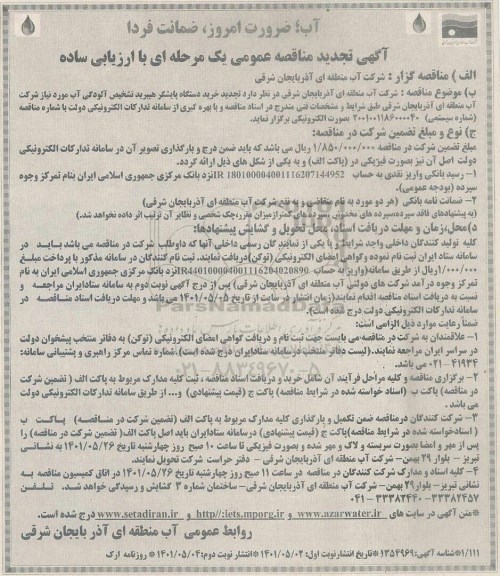 آب؛ ضرورت امروز، ضمانت فردا
آگهی تجدید مناقصه عمومی یک مرحله ای با ارزیابی ساده
الف) مناقصه گزار: شرکت آب منطقه ای آذربایجان شرقی
ب) موضوع مناقصه: شرکت آب منطقه ای آذربایجان شرقی در نظر دارد تجدید خرید دستگاه پایشگر هیبرید تشخیص آلودگی آب مورد نیاز شرکت
آب منطقه ای آذربایجان شرقی طبق شرایط و مشخصات فنی مندرج در اسناد مناقصه و با بهره گیری از سامانه تدارکات الکترونیکی دولت با شماره مناقصه
(شماره سیستمی) ۲۰۰۱۰۰۱۱۸۶۰۰۰۰۴۰ بصورت الکترونیکی برگزار نماید.
ج) نوع و مبلغ تضمین شرکت در مناقصه:
مبلغ تضمین شرکت در مناقصه ۱/۸۵۰/۰۰۰/۰۰۰ ریال می باشد که باید ضمن درج و بارگذاری تصویر آن در سامانه تدارکات الکترونیکی
دولت اصل آن نیز بصورت فیزیکی در (پاکت الف) و به یکی از شکل های ذیل ارائه گردد.
۱- رسید بانکی واریز نقدی به حساب IR 180100004001116207144952 نزد بانک مرکزی جمهوری اسلامی ایران بنام تمرکز وجوه
سپرده (بودجه عمومی).
۲- ضمانت نامه بانکی (هر دو مورد به نام متقاضی و به نفع شرکت آب منطقه ای آذربایجان شرقی)
(به پیشنهادهای فاقد سپرده، سپرده های مخدوش، سپرده های کمتر از میزان مقرر، چک شخصی و نظایر آن ترتیب اثر داده نخواهد شد.)
د) محل، زمان و مهلت دریافت اسناد، محل تحویل و گشایش پیشنهادها:
کلیه تولید کنندگان داخلی واجد شرایط و یا یکی از نمایندگان رسمی داخلی آنها که داوطلب شرکت در مناقصه می باشد بایـد در
سامانه ستاد ایران ثبت نام نموده و گواهی امضای الکترونیکی (توکن) دریافت نمایند. ثبت نام کنندگان در سامانه مذکور با پرداخت مبلـغ
۱/۰۰۰/۰۰۰ ریال از طریق سامانه (واریز به حساب IR440100004001116204020890 نزد بانک مرکزی جمهوری اسلامی ایران به نام
تمرکز وجوه درآمد شرکت های دولتی آب منطقه ای آذربایجان شرقی) پس از درج آگهی نوبت دوم به سامانه ستاد ایران مراجعه و
نسبت به دریافت اسناد مناقصه اقدام نمایند (زمان انتشار در سایت از تاریخ ۱۴۰۱/۰۵/۰۵ می باشد و مهلت دریافت اسناد مناقصـه در
سامانه تدارکات الکترونیکی دولت درج شده است).
ضمناً رعایت موارد ذیل الزامی است:
۱- علاقمندان به شرکت در مناقصه می بایست جهت ثبت نام و دریافت گواهی امضای الکترونیکی (توکن) به دفاتر منتخب پیشخوان دولت
در سراسر ایران مراجعه نمایند. (لیست دفاتر منتخب در سامانه ستاد ایران درج شده است). شماره تماس مرکز راهبری و پشتیبانی سامانه:
۴۱۹۳۴ - ۰۲۱ می باشد.
۲- برگزاری مناقصه و کلیه مراحل فرآیند آن شامل خرید و دریافت اسناد مناقصه، ثبت کلیه مدارک مربوط به پاکت الف (تضمین شرکت
در مناقصه) پاکت ب (اسناد خواسته شده در شرایط مناقصه) پاکت ج (قیمت پیشنهادی) و... از طریق سامانه تدارکات الکترونیکی دولت
می باشد.
۳- شرکت کنندگان در مناقصه ضمن تکمیل و بارگذاری کلیه مدارک مربوط به پاکت الف (تضمین شرکت در مناقصـه) پاکـت ب
(اسناد خواسته شده در شرایط مناقصه) پاکت ج (قیمت پیشنهادی) در سامانه ستاد ایران باید اصل پاکت الف (تضمین شرکت در مناقصه) را
پس از مهر و امضا بصورت سربسته و لاک و مهر شده و بصورت فیزیکی تا ساعت ۱۰ صبح روز چهارشنبه تاریخ ۱۴۰۱/۰۵/۲۶ به نشانـی
تبریز - بلوار ۲۹ بهمن- شرکت آب منطقه ای آذربایجان شرقی – دفتر حراست شرکت تحویل نمایند.
۴- کلیه اسناد و مدارک شرکت کنندگان در مناقصه در ساعت ۱۱ صبح روز چهارشنبه تاریخ ۱۴۰۱/۰۵/۲۶ در اتاق کمیسیون مناقصه به
نشانی تبریز- بلوار ۲۹ بهمن- شرکت آب منطقه ای آذربایجان شرقی- ساختمان شماره ۳ گشایش و رسیدگی خواهد شـد. تلـفن
۳۳۳۸۲۴۵۷- ۳۳۳۸۲۴۴۰ - ۰۴۱
*متن آگهی در سایت های www.azarwater.ir و http://:iets.mporg.ir و www.setadiran.ir درج شده است.
روابط عمومی آب منطقه ای آذربایجان شرقی
۱/۱۱۱ *شناسه آگهی: ۱۳۵۴۹۶۹ *تاریخ انتشار نوبت اول: ۱۴۰۱/۰۵/۰۲ *انتشار نوبت دوم: ۱۴۰۱/۰۵/۰۴ *روزنامه ارک
ParsNamadData
۰۲۱-۸۸۳۴۹۶۷۰-۵